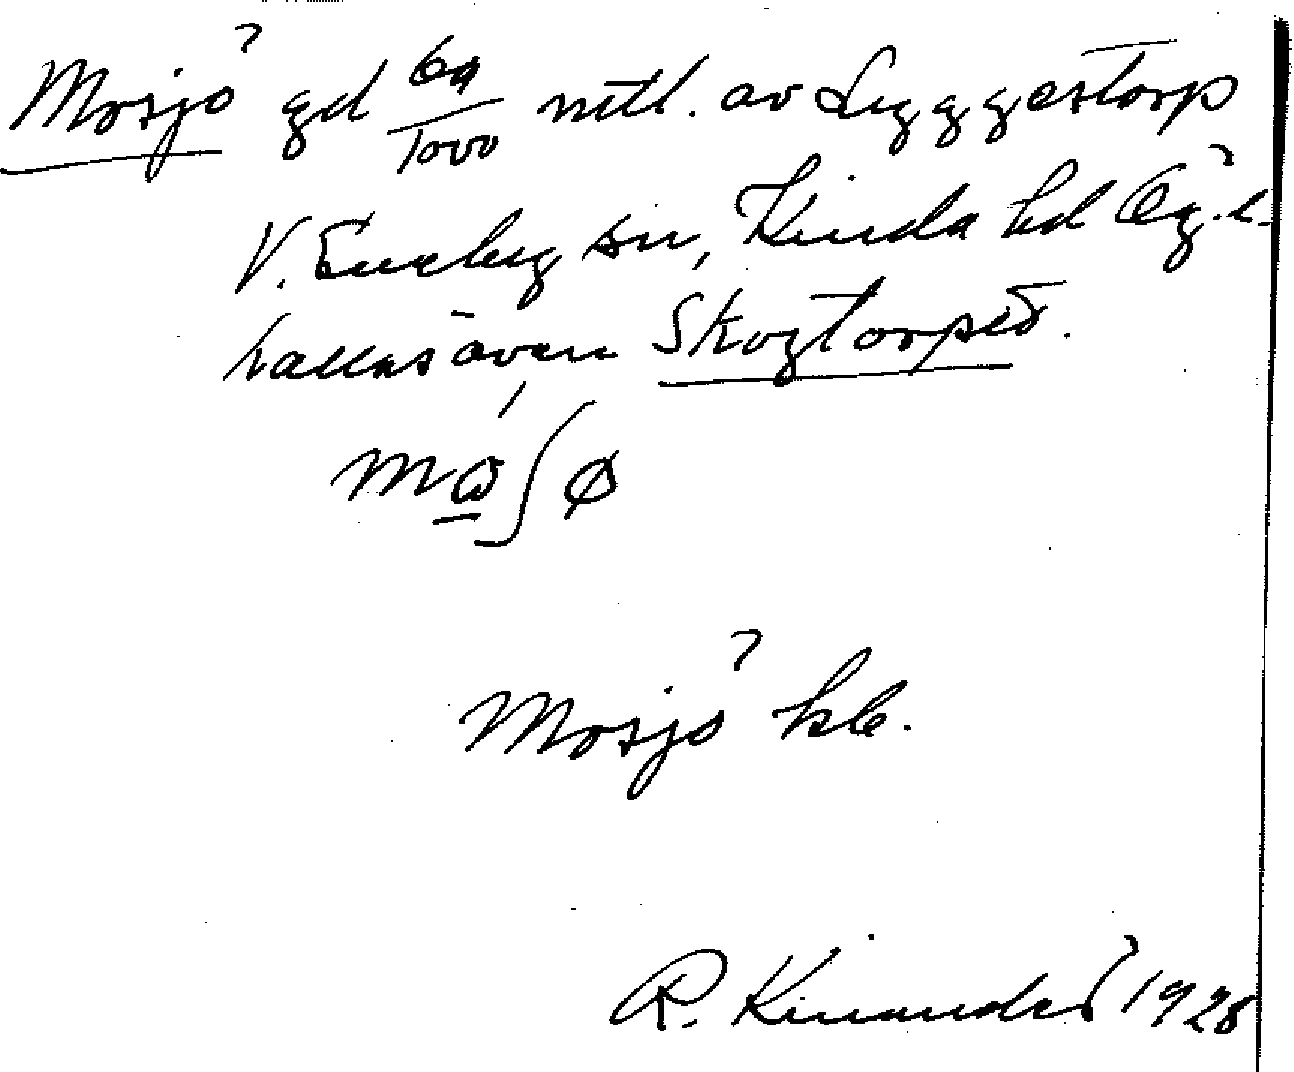 Mosjö gd 69/1000 mtl. av Liggestorp
V. Eneby sn, Kinda hd Ög. l.
kallas även Skogtorpet.
Mosjö hk.
R. Kinander 1928